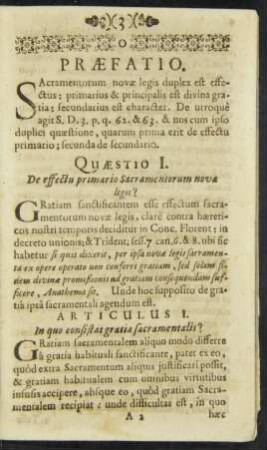 3
PRÆFATIO.
SAcramentorum novæ legis duplex est effe-
ctus: primarius & principalis est divina gra-
tia; secundarius est character. De utroquè
agit S. D. 3. p. q. 62. & 63. & nos cum ipso
duplici quæstione, quarum prima erit de effectu
primario; secunda de secundario.
QUÆSTIO I.
De effectu primario Sacramentorum novæ
legis?
GRatiam sanctificantem esse effectum sacra-
mentorum novæ legis, clarè contra hæreti-
cos nostri temporis deciditur in Conc. Florent; in
decreto unionis; & Trident, sess. 7 can. 6. & 8. ubi sic
habetur si quis dixerit, per ipsa novæ legis sacramen-
ta ex opere operato non conferri gratiam, sed solam fi-
dem divinæ promissionis ad gratiam consequendam suf-
ficere, Anathema sit. Unde hoc supposito de gra-
tia ipsa sacramentali agendum est.
ARTICULUS I.
In quo consistat gratia sacramentalis?
GRatiam sacramentalem aliquo modo differre
à gratia habituali sanctificante, patet ex eo,
quòd extra Sacramentum aliquis justificari possit,
& gratiam habitualem cum omnibus virtutibus
infusis accipere, absque eo, quòd gratiam Sacra-
mentalem recipiat: unde difficultas est, in quo
A 2 hæc